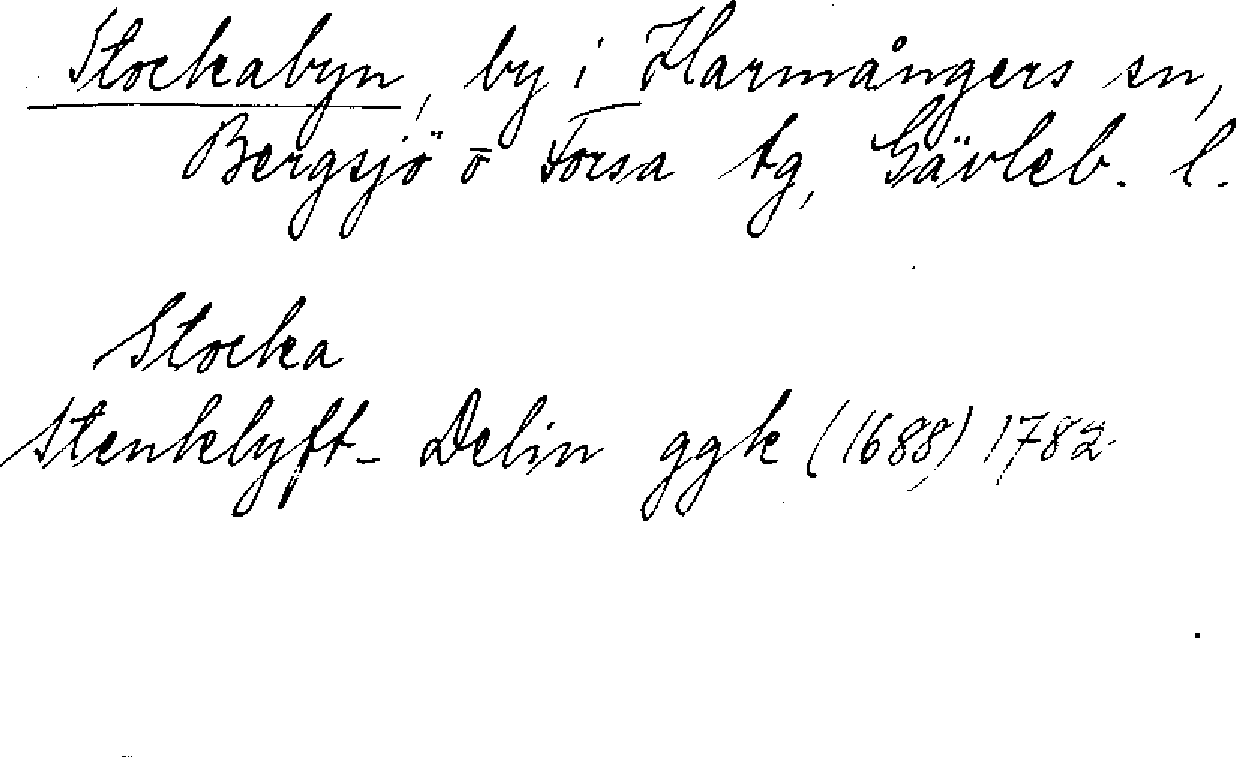 Stockabyn, by i Harmångers sn,
Bergsjö o Forsa tg, Gävleb. l.
Stocka
Stenklyft- Delin ggk (1688) 1782